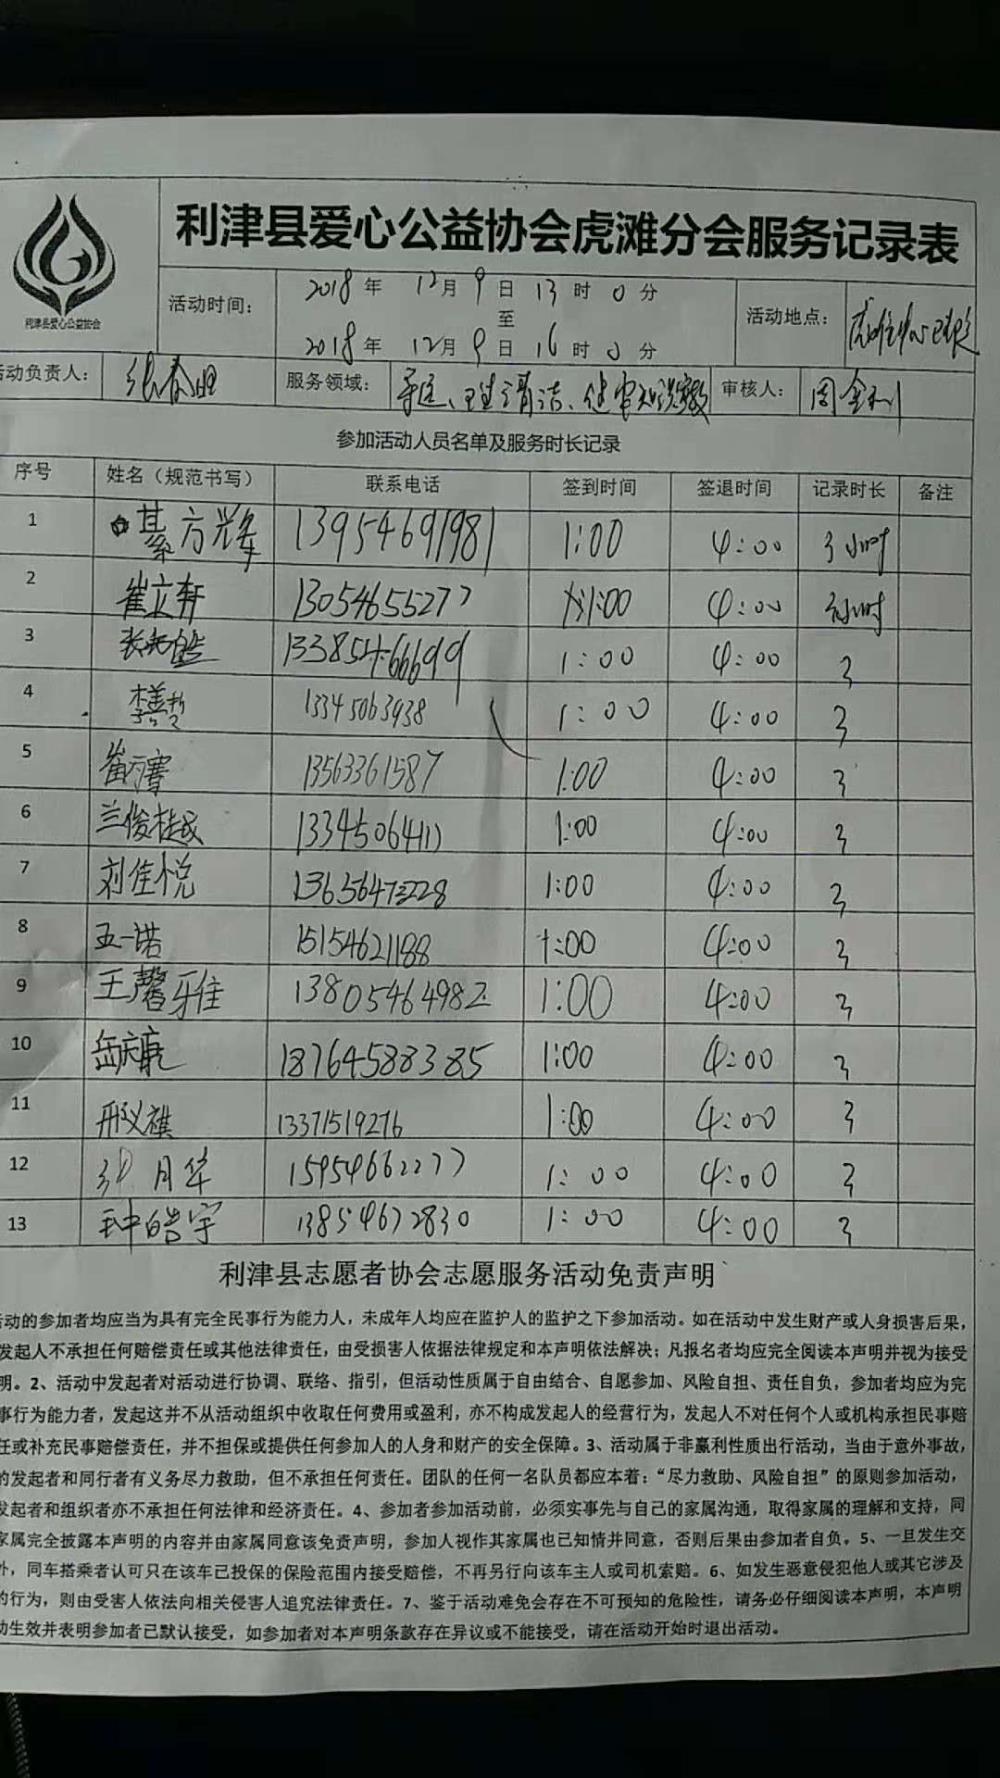 利津县爱心公益协会虎滩分会服务记录表
利津县爱心公益协会
活动时间： 2018年 12月 9日 13时 0分
至
2018年 12月 9日 16时 0分
活动地点：
活动负责人： 张春
服务领域： 清洁、健
审核人： 周金利
参加活动人员名单及服务时长记录
序号 姓名（规范书写） 联系电话 签到时间 签退时间 记录时长 备注
1 綦方辉 13954691981 1:00 4:00 3小时
2 崔立轩 13054655277 1:00 4:00 3小时
3 1:00 4:00 3
4 李善哲 13345063938 1:00 4:00 3
5 崔方骞 13563361587 1:00 4:00 3
6 兰俊桂成 13345064111 1:00 4:00 3
7 刘佳悦 1:00 4:00 3
8 王一诺 15154621188 1:00 4:00 3
9 王馨雅 13805464982 1:00 4:00 3
10 岳庆康 18764588385 1:00 4:00 3
11 邢义祺 13371519276 1:00 4:00 3
12 张月华 15954662277 1:00 4:00 3
13 皓宇 13854672830 1:00 4:00 3
利津县志愿者协会志愿服务活动免责声明
活动的参加者均应当为具有完全民事行为能力人，未成年人均应在监护人的监护之下参加活动。如在活动中发生财产或人身损害后果，
发起人不承担任何赔偿责任或其他法律责任，由受损害人依据法律规定和本声明依法解决；凡报名者均应完全阅读本声明并视为接受
明。2、活动中发起者对活动进行协调、联络、指引，但活动性质属于自由结合、自愿参加、风险自担、责任自负，参加者均应为完
事行为能力者，发起这并不从活动组织中收取任何费用或盈利，亦不构成发起人的经营行为，发起人不对任何个人或机构承担民事赔
任或补充民事赔偿责任，并不担保或提供任何参加人的人身和财产的安全保障。3、活动属于非赢利性质出行活动，当由于意外事故，
的发起者和同行者有义务尽力救助，但不承担任何责任。团队的任何一名队员都应本着：“尽力救助、风险自担”的原则参加活动，
发起者和组织者亦不承担任何法律和经济责任。4、参加者参加活动前，必须实事先与自己的家属沟通，取得家属的理解和支持，同
家属完全披露本声明的内容并由家属同意该免责声明，参加人视作其家属也已知情并同意，否则后果由参加者自负。5、一旦发生交
外，同车搭乘者认可只在该车已投保的保险范围内接受赔偿，不再另行向该车主人或司机索赔。6、如发生恶意侵犯他人或其它涉及
的行为，则由受害人依法向相关侵害人追究法律责任。7、鉴于活动难免会存在不可预知的危险性，请务必仔细阅读本声明，本声明
动生效并表明参加者已默认接受，如参加者对本声明条款存在异议或不能接受，请在活动开始时退出活动。